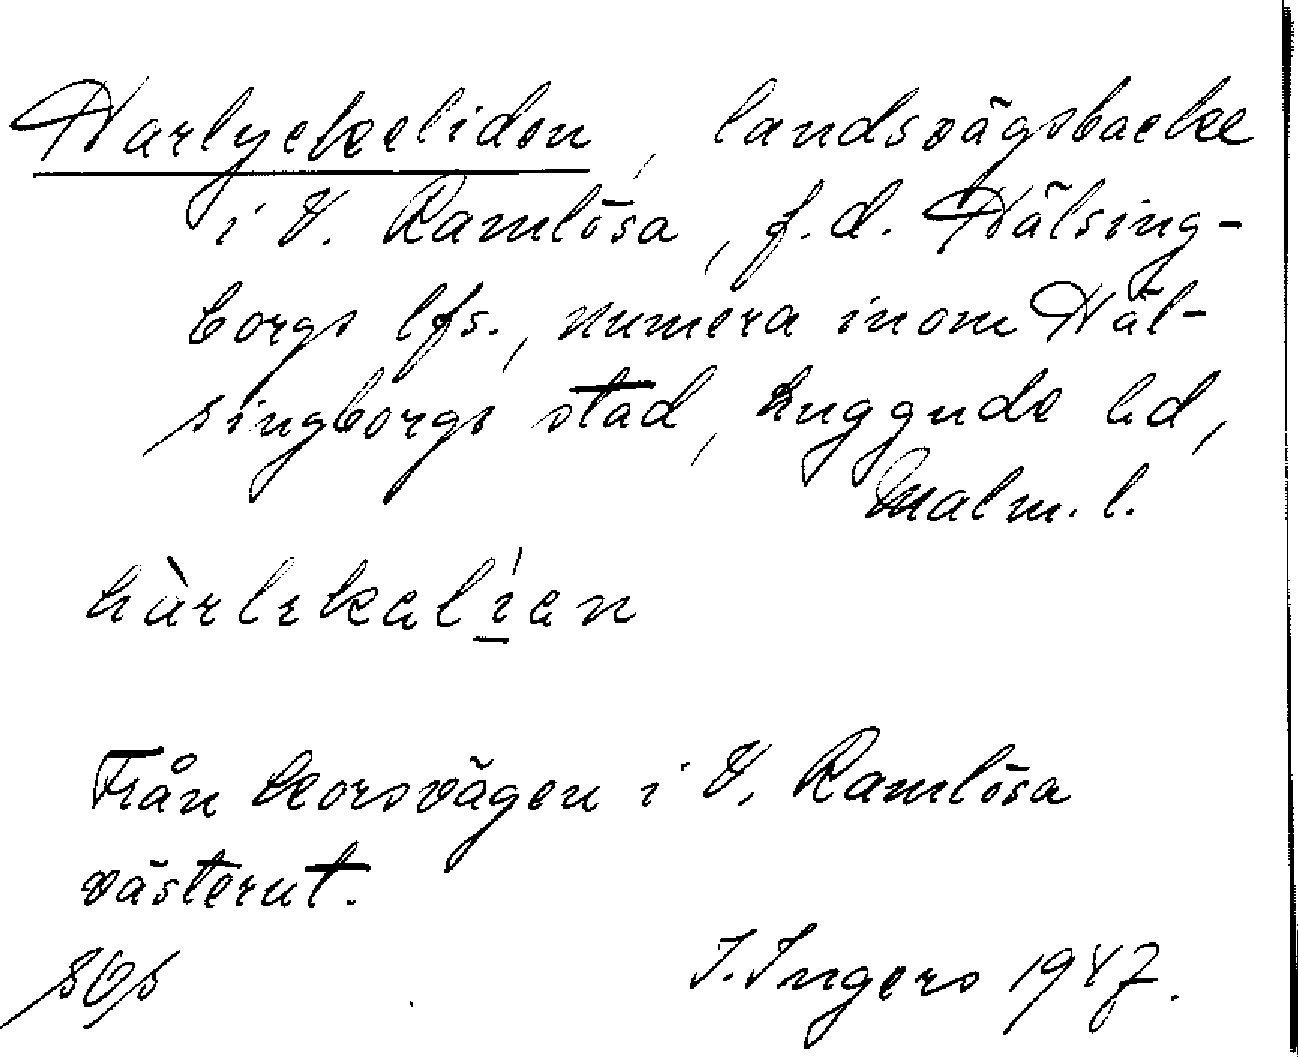 Harlyckeliden, landsvägsbacke
i V. Ramlösa, f.d. Hälsing-
borgs lfs., numera inom Häl-
singborgs stad, Luggude hd,
Malm. l.
hàrlekəl'i̱ən
Från korsvägen i V. Ramlösa
västerut.
I. Ingers 1947.